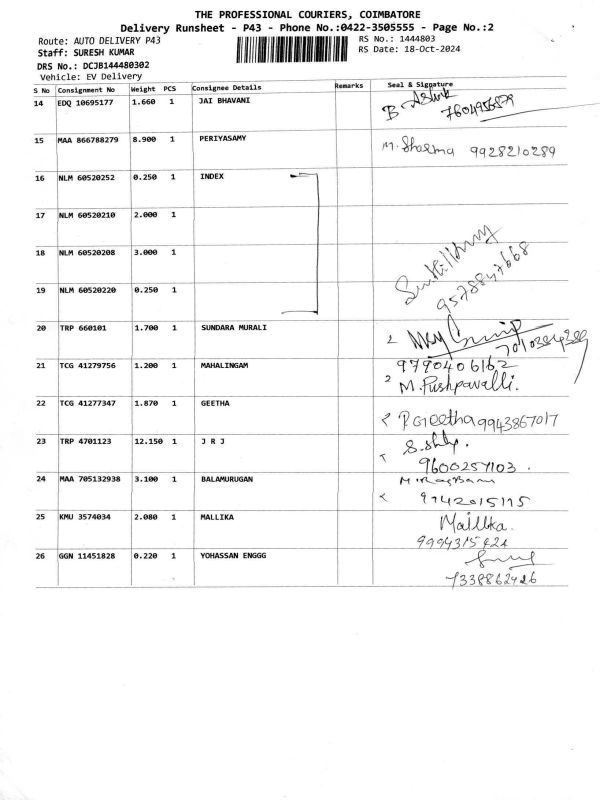 THE PROFESSIONAL COURIERS, COIMBATORE
Delivery Runsheet - P43 - Phone No.:0422-3505555 - Page No.:2
Route: AUTO DELIVERY P43
RS No.: 1444803
Staff: SURESH KUMAR
RS Date: 18-Oct-2024
DRS No.: DCJB144480302
Vehicle: EV Delivery
S No Consignment No Weight PCS Consignee Details Remarks Seal & Signature
14 EDQ 10695177 1.660 1 JAI BHAVANI
B Ashok 7604956879
15 MAA 866788279 8.900 1 PERIYASAMY
M. Sharma 9928210289
16 NLM 60520252 0.250 1 INDEX
17 NLM 60520210 2.000 1
18 NLM 60520208 3.000 1
9578847668
19 NLM 60520220 0.250 1
20 TRP 660101 1.700 1 SUNDARA MURALI
21 TCG 41279756 1.200 1 MAHALINGAM 9790406162
M. Pushpavalli.
22 TCG 41277347 1.870 1 GEETHA
P. Geetha 9943867017
23 TRP 4701123 12.150 1 J R J
9600257103.
24 MAA 705132938 3.100 1 BALAMURUGAN
9942015115
25 KMU 3574034 2.080 1 MALLIKA Mallika.
9994315424
26 GGN 11451828 0.220 1 YOHASSAN ENGGG
7338862426